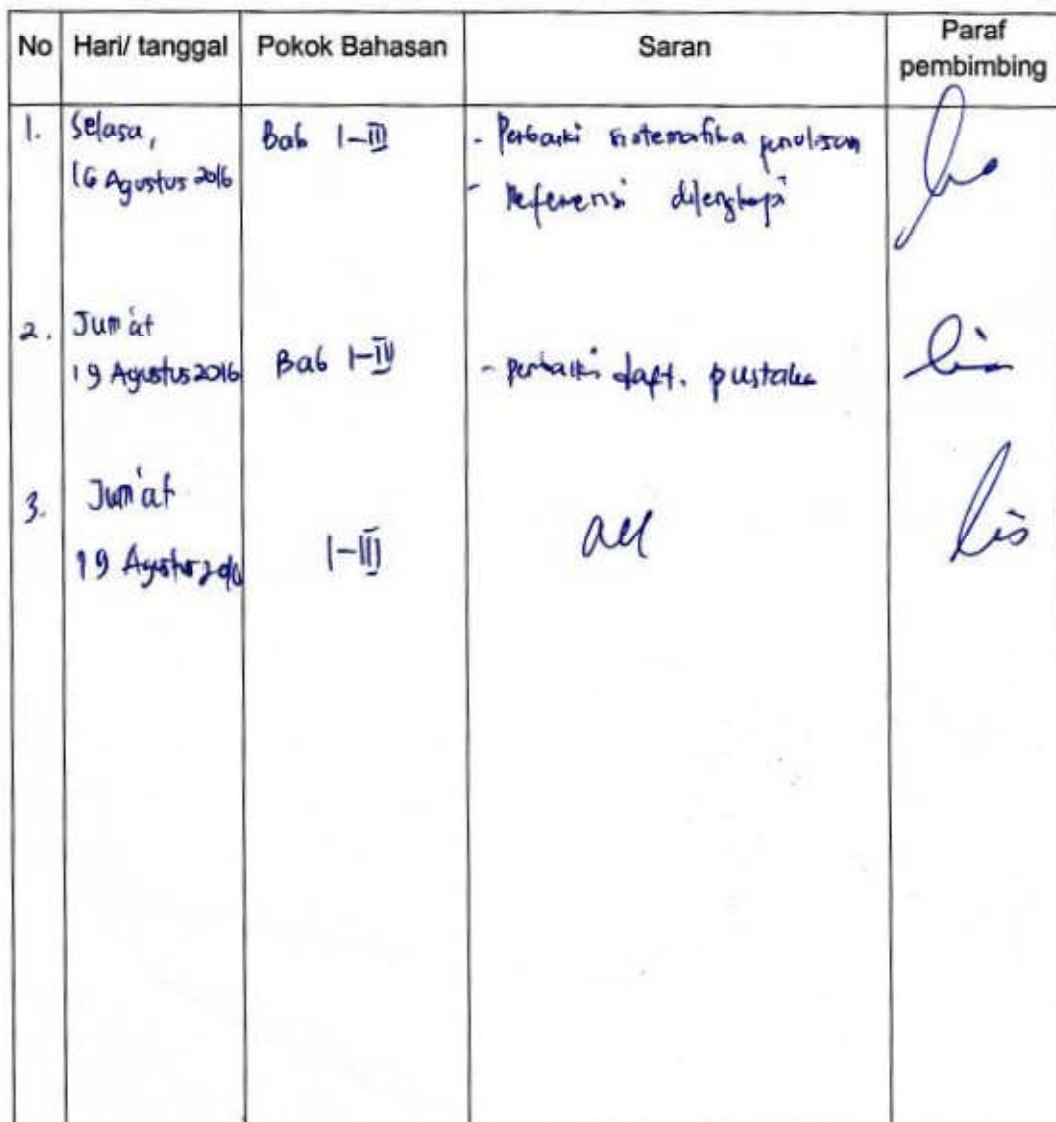 No Hari/ tanggal Pokok Bahasan Saran Paraf
pembimbing
1. Selasa, Bab I-III - Perbaiki sistematika penulisan
16 Agustus 2016 - Referensi dilengkapi
2. Jum'at
19 Agustus 2016 Bab I-IV - perbaiki daft. pustaka
3. Jum'at
19 Agustus 2016 I-III